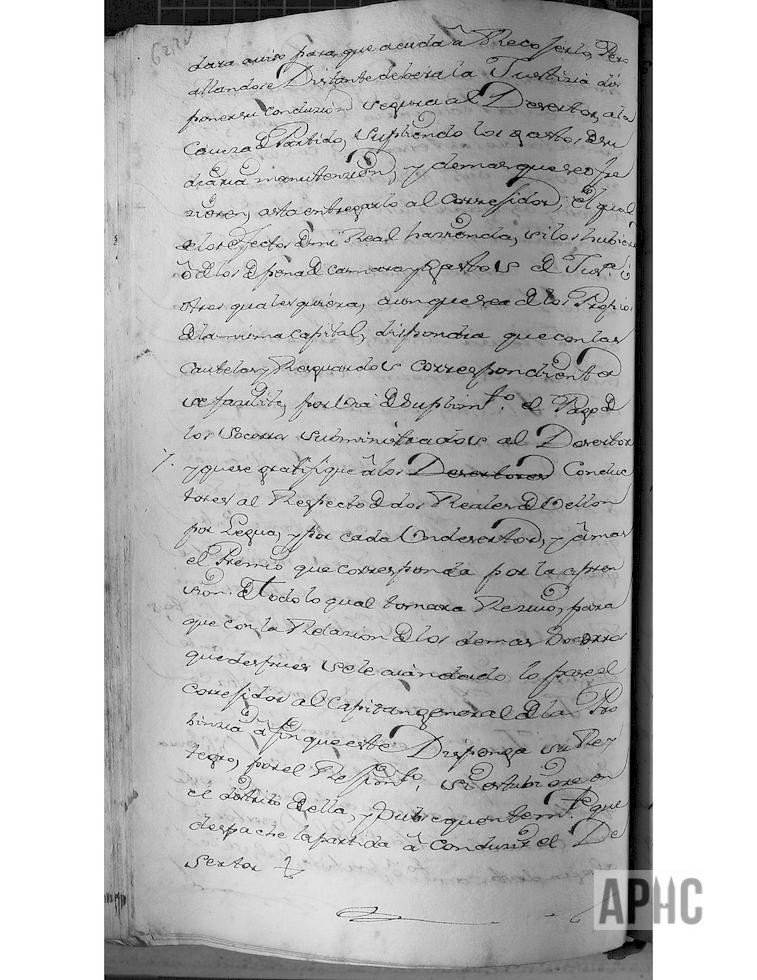 dara aviso para que acuda â Recoxerlo, Pero
allandose Distante debera la Justizia dis
poner su conduzion segura al Desertor, a la
Caveza de Partido, supliendo los gastos de su
diaria manutenzion, y demas que se ofre
zieren, asta entregarlo al Correxidor, el qual
de los efectos de mi Real hazienda, si los hubiere
ô de los de pena de camara y gastos de Just.ª û
otros qualesquiera, aunque sea de los Propios
de la misma capital, dispondra que con las
cautelas y Resguardos correspondientes
se fazilite, por via de suplimto. el Pago de
los socorros subministrados al Desertor
7. y que se gratifique â los Desertores Conduc
tores al Respecto de dos Reales de Vellon
por Legua, y por cada Un desertor, y âmas
el Premio que corresponda por la apren
sion. De todo lo qual tomara Rezivo, para
que con la Relazion de los demas Socorros
que despues se le aian dado lo pase el
Correxidor al Capitan general de la Pro
binzia â fin que este Disponga su Rey
tegro, por el Reximto. si estubiere en
el distrito de ella, y subsequentemte. que
despache la partida â Conduzir el De
sertor
APHC